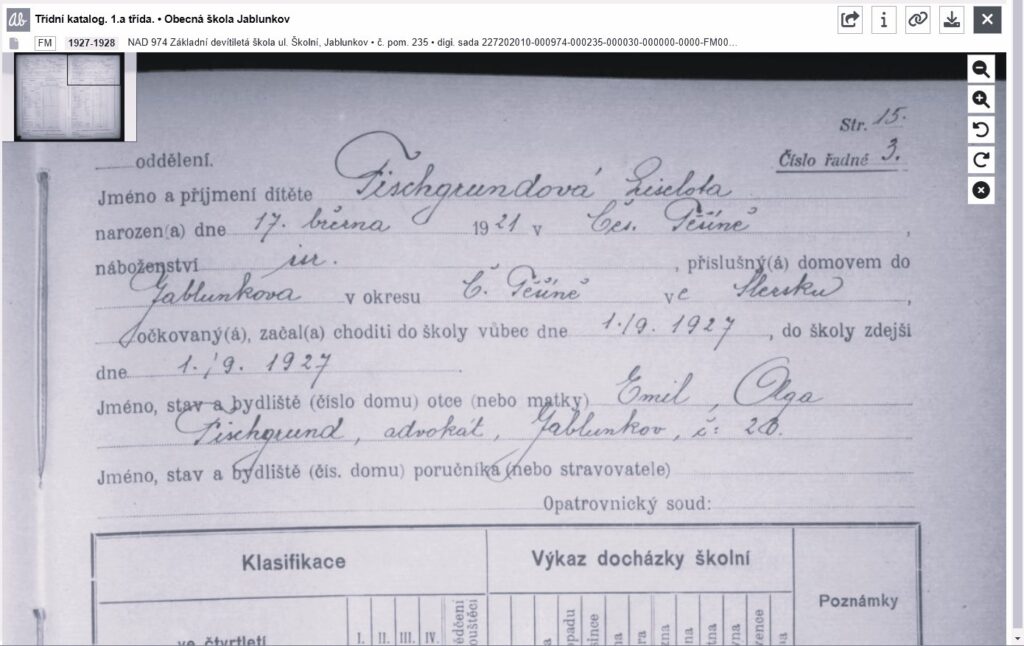 Třídní katalog. 1.a třída. • Obecná škola Jablunkov
FM 1927-1928 NAD 974 Základní devítiletá škola ul. Školní, Jablunkov • č. pom. 235 • digi. sada 227202010-000974-000235-000030-000000-0000-FM00...
Str. 15.
oddělení.
Číslo řadné 3.
Jméno a příjmení dítěte Fischgrundová Liselota
narozen(a) dne 17. března 1921 v Čes. Těšíně,
náboženství isr. , příslušný(á) domovem do
Jablunkova v okresu Č. Těšíně ve Slezsku,
očkovaný(á), začal(a) choditi do školy vůbec dne 1./9. 1927, do školy zdejší
dne 1./9. 1927.
Jméno, stav a bydliště (číslo domu) otce (nebo matky) Emil, Olga
Fischgrund, advokát, Jablunkov, č: 20.
Jméno, stav a bydliště (čís. domu) poručníka (nebo stravovatele)
Opatrovnický soud:
Klasifikace
Výkaz docházky školní
Poznámky
ve čtvrtletí
I. II. III. IV.